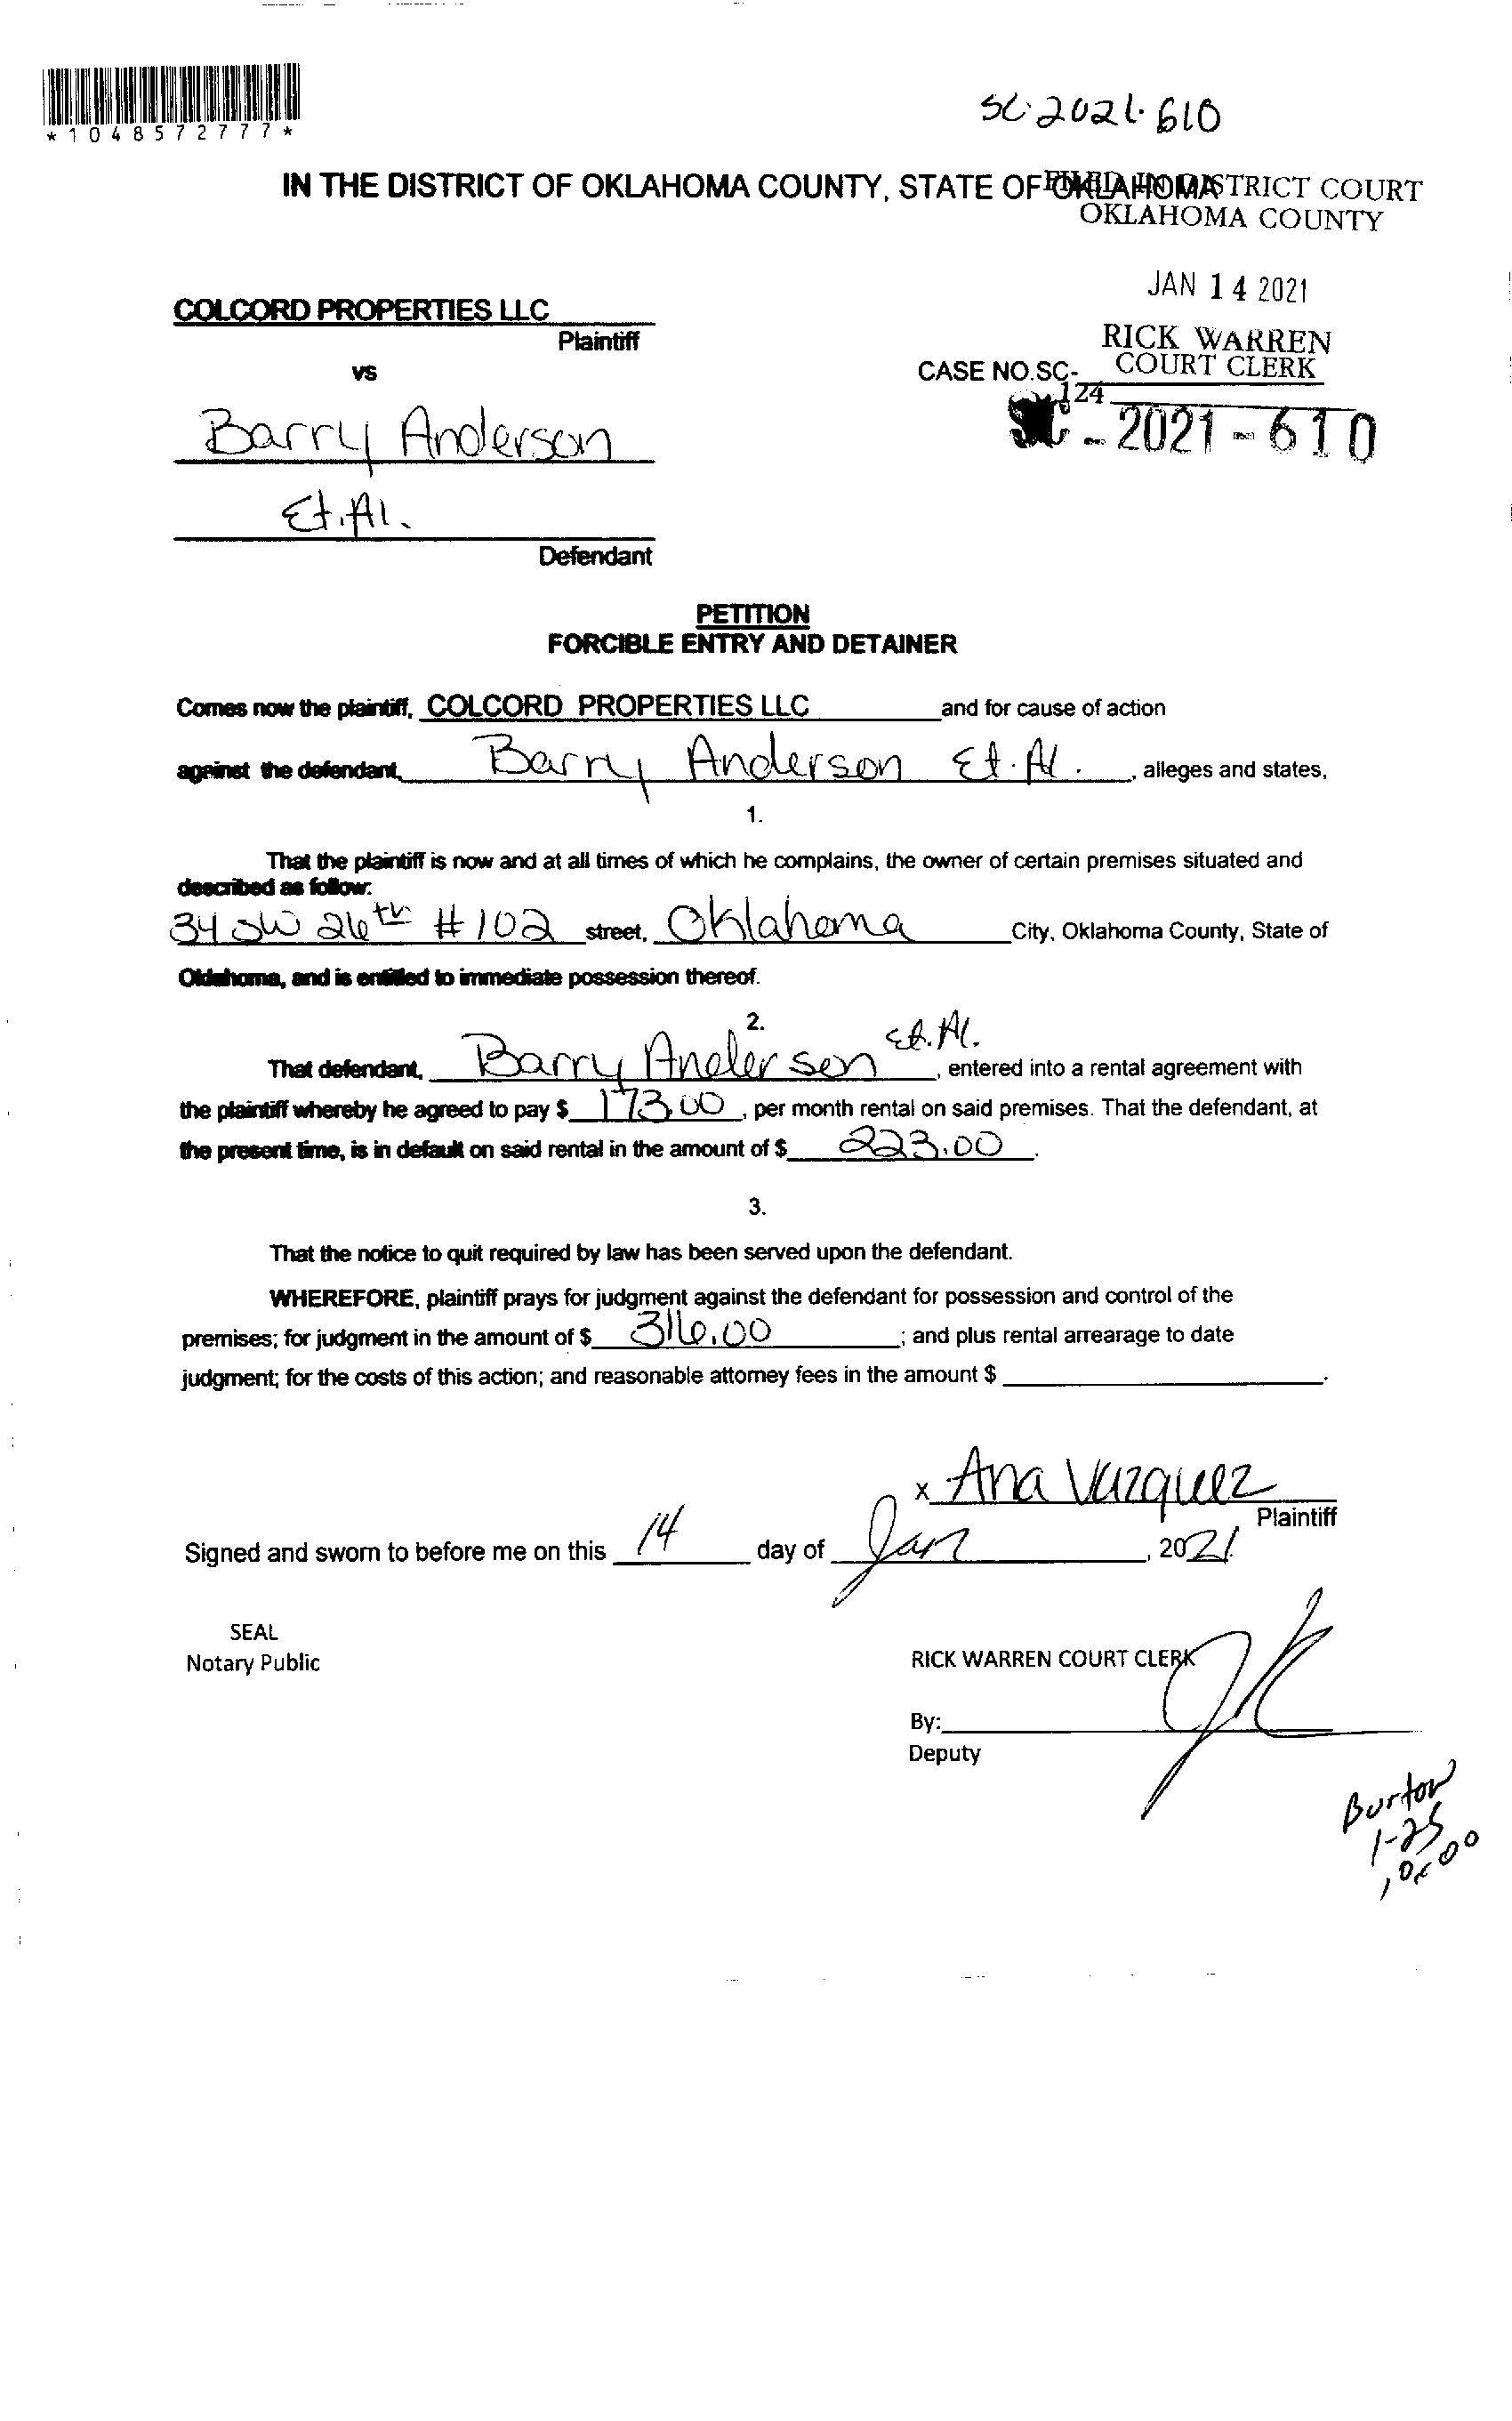 *1048572777*
SC-2021-610
IN THE DISTRICT OF OKLAHOMA COUNTY, STATE OF OKLAHOMA
FILED IN DISTRICT COURT
OKLAHOMA COUNTY
JAN 14 2021
RICK WARREN
COURT CLERK
124
COLCORD PROPERTIES LLC
Plaintiff
vs
CASE NO.SC-
SC - 2021 - 610
Barry Anderson
Et. Al.
Defendant
PETITION
FORCIBLE ENTRY AND DETAINER
Comes now the plaintiff, COLCORD PROPERTIES LLC and for cause of action
against the defendant, Barry Anderson Et. Al. , alleges and states,
1.
That the plaintiff is now and at all times of which he complains, the owner of certain premises situated and
described as follow:
34 SW 26th #102 street, Oklahoma City, Oklahoma County, State of
Oklahoma, and is entitled to immediate possession thereof.
2.
That defendant, Barry Anderson Et. Al. , entered into a rental agreement with
the plaintiff whereby he agreed to pay $ 173.00 , per month rental on said premises. That the defendant, at
the present time, is in default on said rental in the amount of $ 223.00 .
3.
That the notice to quit required by law has been served upon the defendant.
WHEREFORE, plaintiff prays for judgment against the defendant for possession and control of the
premises; for judgment in the amount of $ 316.00 ; and plus rental arrearage to date
judgment; for the costs of this action; and reasonable attorney fees in the amount $ .
x Ana Vazquez
Plaintiff
Signed and sworn to before me on this 14 day of Jan , 2021.
SEAL
Notary Public
RICK WARREN COURT CLERK
By:
Deputy
Burton
1-25